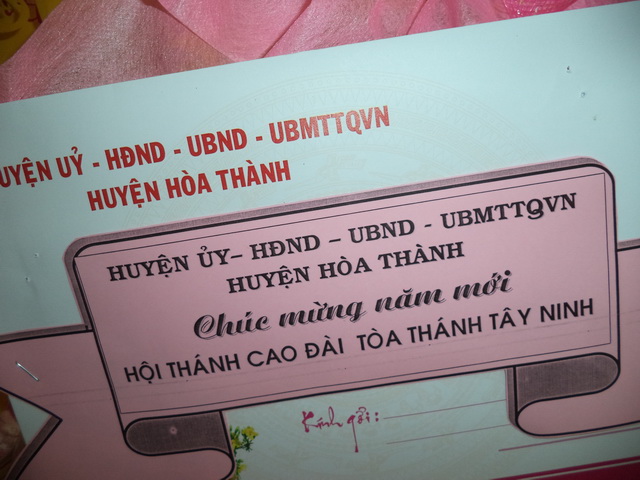 UYỆN UỶ - HĐND - UBND - UBMTTQVN
HUYỆN HÒA THÀNH
HUYỆN ỦY– HĐND – UBND - UBMTTQVN
HUYỆN HÒA THÀNH
Chúc mừng năm mới
HỘI THÁNH CAO ĐÀI TÒA THÁNH TÂY NINH
Kính gởi: